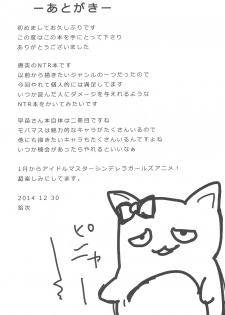 －あとがき－
初めましてお久しぶりです
この度はこの本を手にとって下さり
ありがとうございました
唐突のNTR本です
以前から描きたいジャンルの一つだったので
今回やれて個人的には満足してます
いつか読んだ人にダメージを与えられるような
NTR本をかいてみたいです
早苗さん本自体は二冊目ですね
モバマスは魅力的なキャラがたくさんいるので
他にも描きたいキャラもたくさんいるので
いつか機会があったらやれるといいなぁ
1月からアイドルマスターシンデレラガールズアニメ！
超楽しみにしてます。
2014 12 30